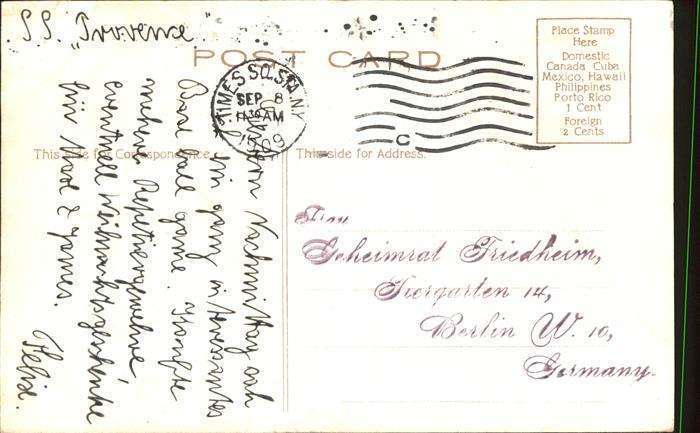 S.S. "Provence"
POST CARD
Place Stamp
Here
Domestic
Canada Cuba
Mexico, Hawaii
Philippines
Porto Rico
1 Cent
Foreign
2 Cents
TIMES SQ. STA. N.Y.
SEP 8
11 30 AM
C
This side for Correspondence.
This side for Address.
Nachmittag sah
ein ganz interessantes
Base ball game. Kaufte
mehrere Repetiergewehre,
eventuell Weihnachtsgeschenke
für &
Felix.
Frau
Geheimrat Friedheim,
Tiergarten 14,
Berlin W. 10,
Germany.